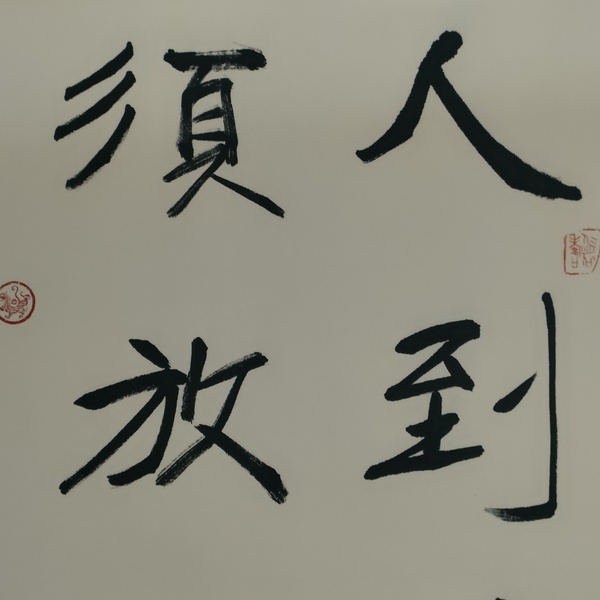 人到
須放